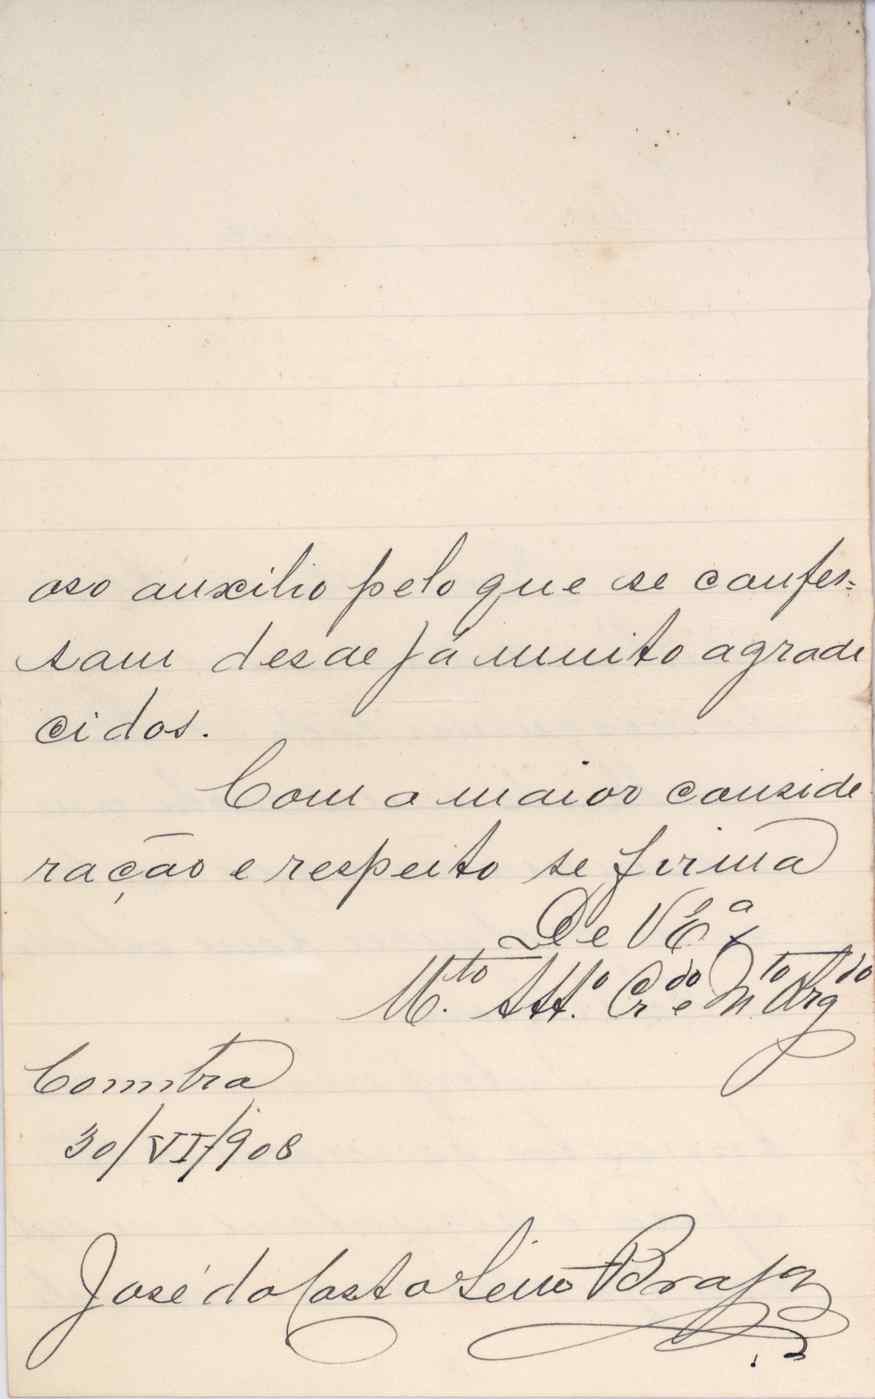 oso auxilio pelo que se confes=
sam desde já muito agrade
cidos.
Com a maior conside
ração e respeito se firma
De V Exª
M.to Att.º Cr.do e M.to Obrgdo
Coimbra
30/VI/908
José da Costa Braga